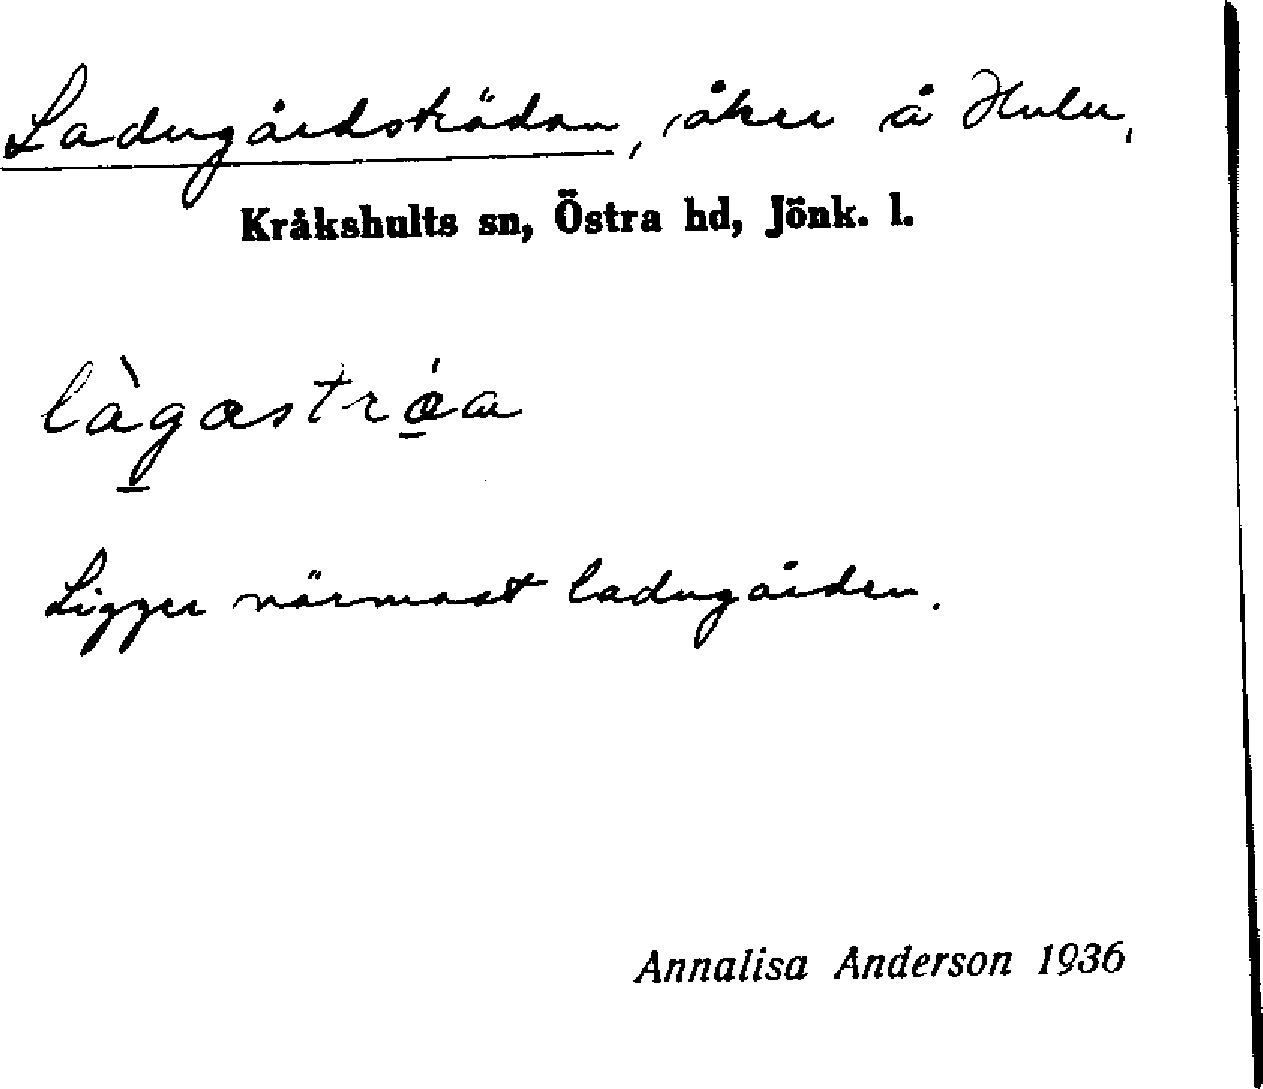 Ladugårdsträdan, åker å Hulu,
Kråkshults sn, Östra hd, Jönk. l.
làgastrǿa
Ligger närmast ladugården.
Annalisa Anderson 1936